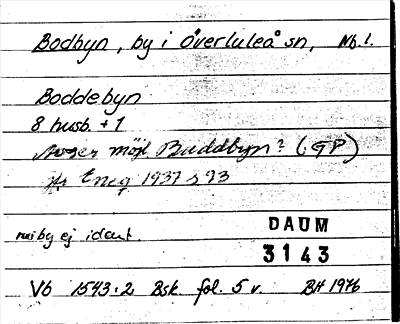 Bodbyn, by i Överluleå sn, Nb.l.
Boddebyn
8 husb. + 1
möjl Buddbyn? (GP)
Eneq 1937 s 93
by ej ident.
DAUM
3143
Vb 1543:2 Bsk fol. 5 v. BH 1976